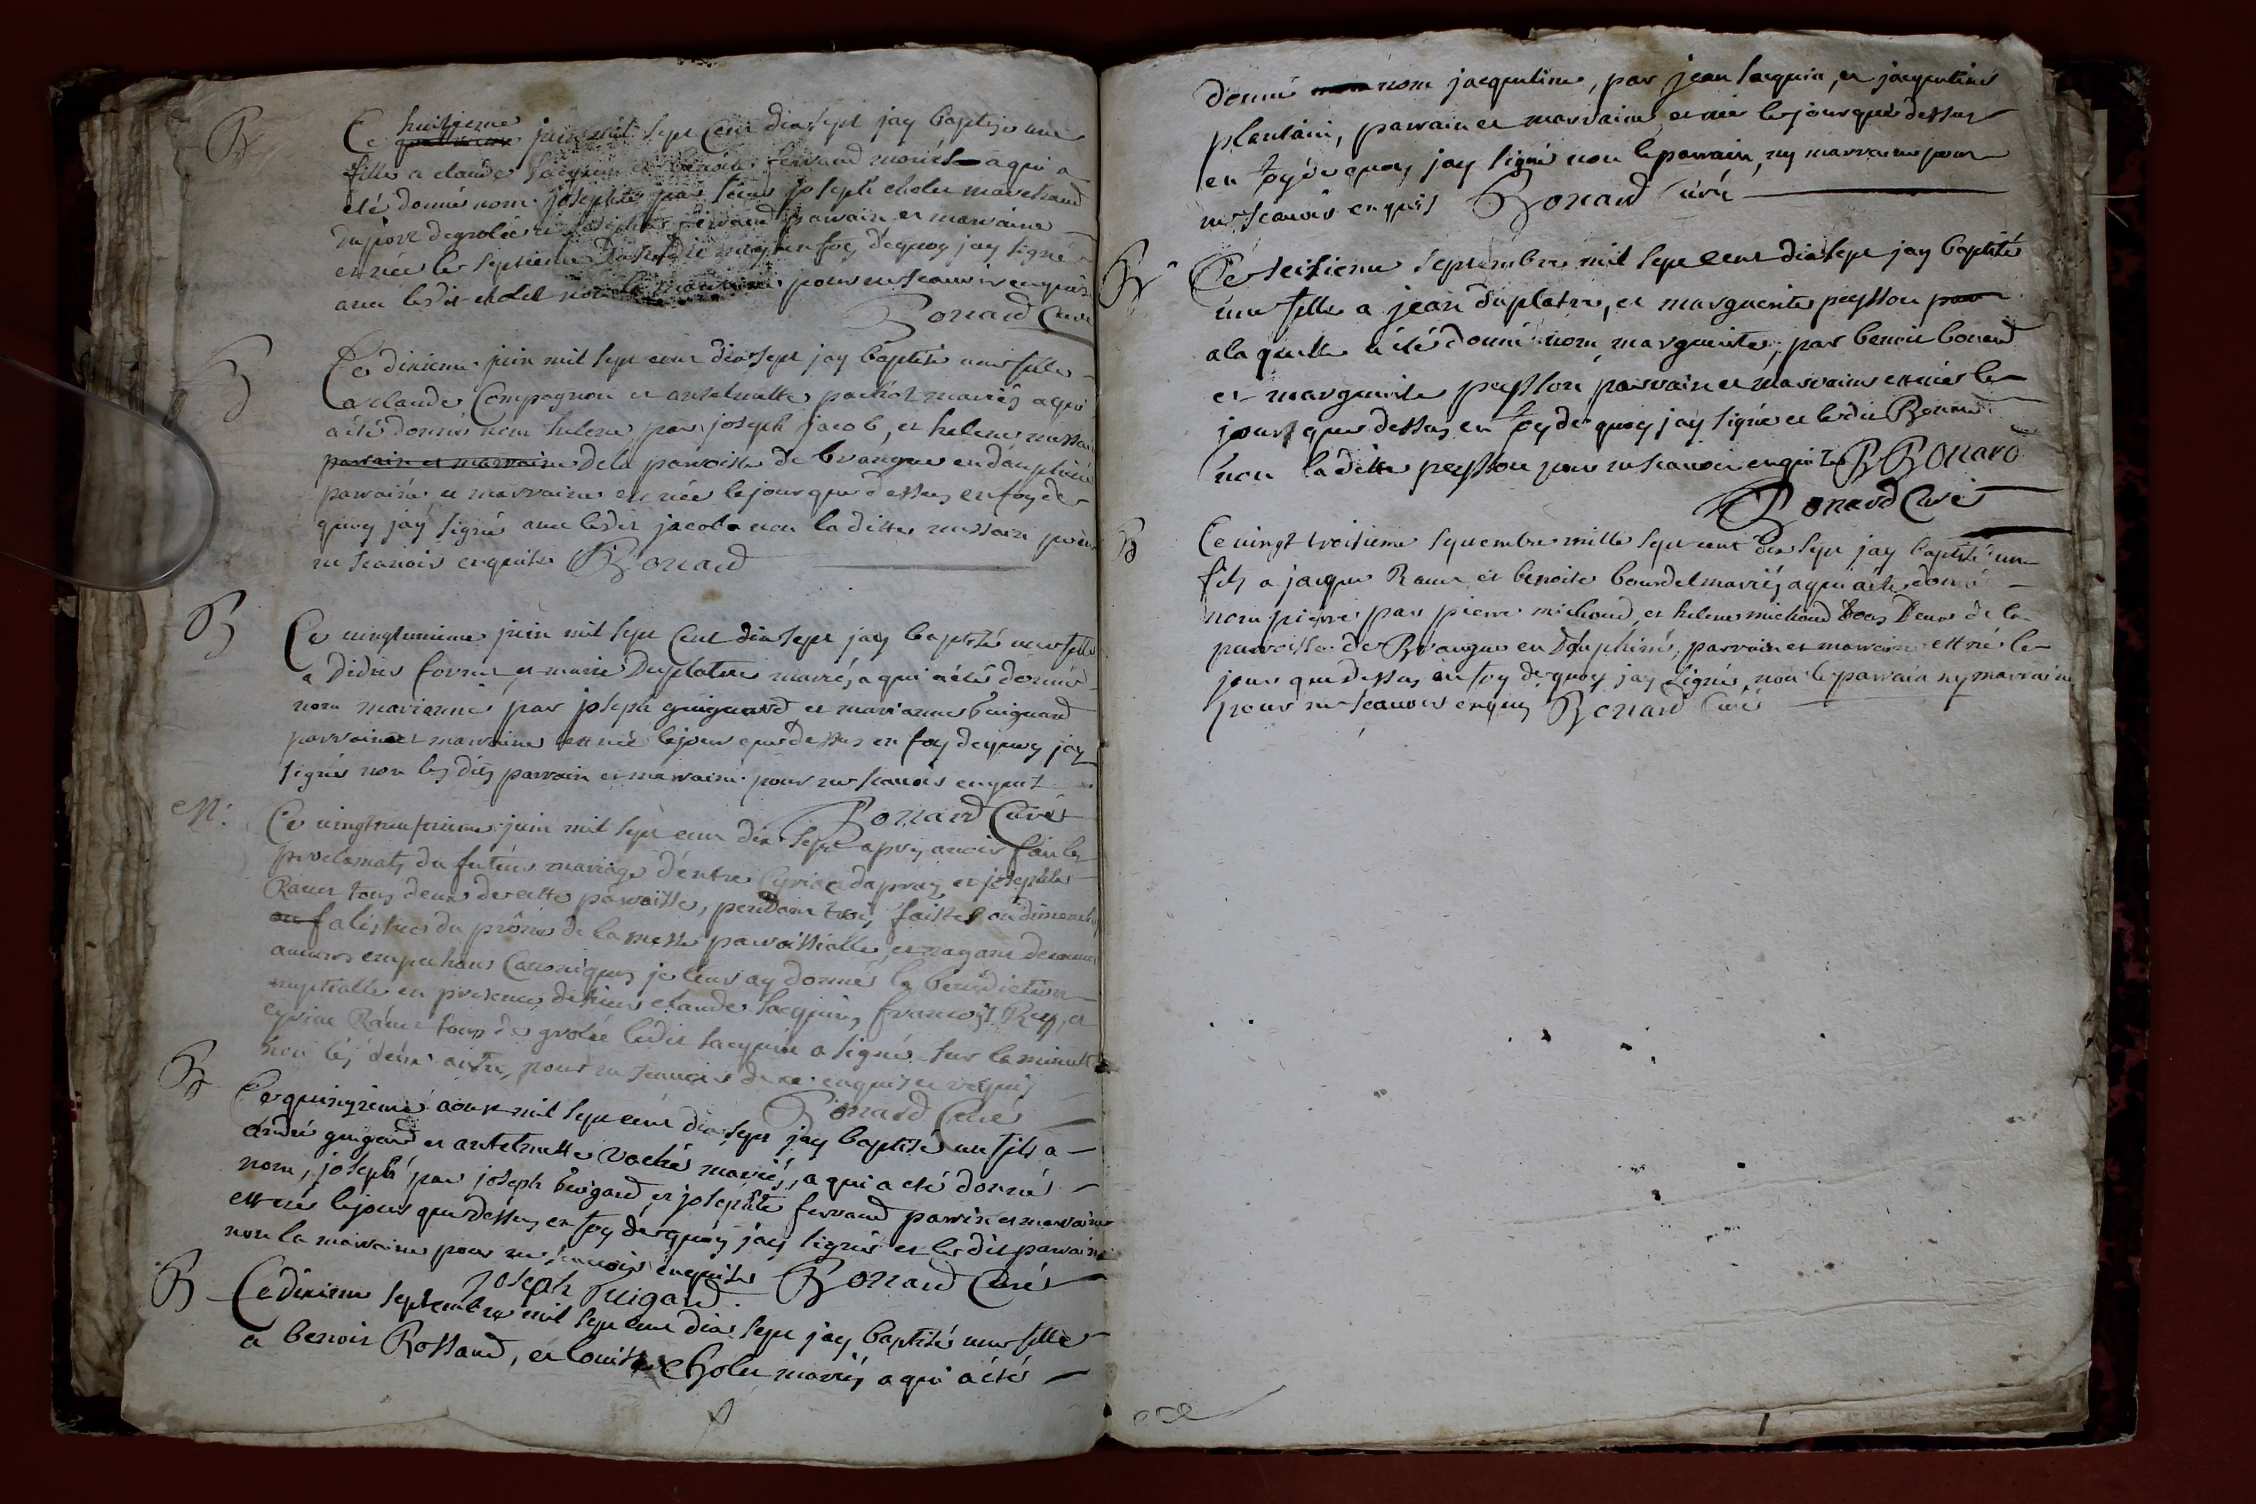 B
Ce huitieme juin mil sept cent dix sept jay baptizé une
fille a claude Jacquin et ferrand mariés a qui a
été donné nom josephte par sieur joseph cholet marchand
du port de grolée et josephte ferrand parrain et marraine
et née le septieme en foy dequoy jay signé
avec le dit cholet non la marraine pour ne scavoir enquise
Bonard Curé
B
Ce dixieme juin mil sept cent dix sept jay baptisé une fille
a claude Compagnon et anthelmette pochot mariés a qui
a été donné nom helene par joseph jacob, et helene
parrain et marraine de la parroisse de brangue en dauphiné
parrain et marraine et née le jour que dessus en foy de
quoy jay signé avec ledit jacob non la ditte pour
ne scavoir enquise Bonard
B
Ce vingtunieme juin mil sept Cent dix sept jay baptisé une fille
a Didier favre et marie Duplatre mariés a qui a été donné
nom marianne par joseph guiguard et marianne Guiguard
parrain et marraine et née le jour que dessus en foy dequoy jay
signé non les dits parrain et marraine pour ne scavoir enquit
Bonard Curé
M:
Ce vingtneufvieme juin mil sept cent dix sept apres avoir fait les
proclamats du futeur mariage d'entre Cyriac dupraz et josephte
Raner tous deux de cette parroisse, pendant trois faistes ou dimenches
au f a l'issue du prône de la messe parroissialle, et nayant decouvert
aucuns empechans Canoniques je leurs ay donnés la benediction
nuptialle en presence de sieur claude Jacquin, francoist Rey, et
cyriac Raner tous de grolée ledit Jacquin a signé sur la minutte
non les deux autre, pour ne scavoir de ce enquis et requis
Bonard Curé
B
Ce quinzieme aoust mil sept cent dix sept jay baptisé un fils a
andré guigard et anthelmette vaché mariés, a qui a eté donné
nom, joseph par joseph Guigard, et josephte ferrand parrin et marraine
et né le jour que dessus en foy de quoy jay signé et le dit parrain
non la marraine pour ne scavoir enquise Bonard Curé
joseph Guigard
B
Ce dixieme septembre mil sept cent dix sept jay baptisé une fille
a benoit Rossand, et louise Cholet mariés a qui a été
donné nom jacqueline, par jean Jacquin, et jacqueline
plantain, parrain et marraine, et née le jour que dessus
en foy de quoy jay signé non le parrain, ny marraine pour
ne scavoir enquis Bonard Curé
B
Ce seisieme septembre mil sept cent dix sept jay baptisé
une fille a jean duplatre, et marguerite peysson
a la quelle a été donné nom, marguerite, par benoit bonard
et marguerite peysson parrain et marraine et née le
jour que dessus en foy de quoy jay signé et le dit Bonard
non la ditte peysson pour ne scavoir enquise B Bonard
Bonard Curé
B
Ce vingt troisieme septembre mille sept cent dix sept jay baptisé un
fils a jacque Raner et benoite bourdel mariés a qui a été donné
nom pierre par pierre michoud et helene michoud tous deux de la
parroisse de Brangue en Dauphiné, parrain et marraine et né le
jour que dessus en foy de quoy jay signé non le parrain ny marraine
pour ne scavoir enquis Bonard Curé